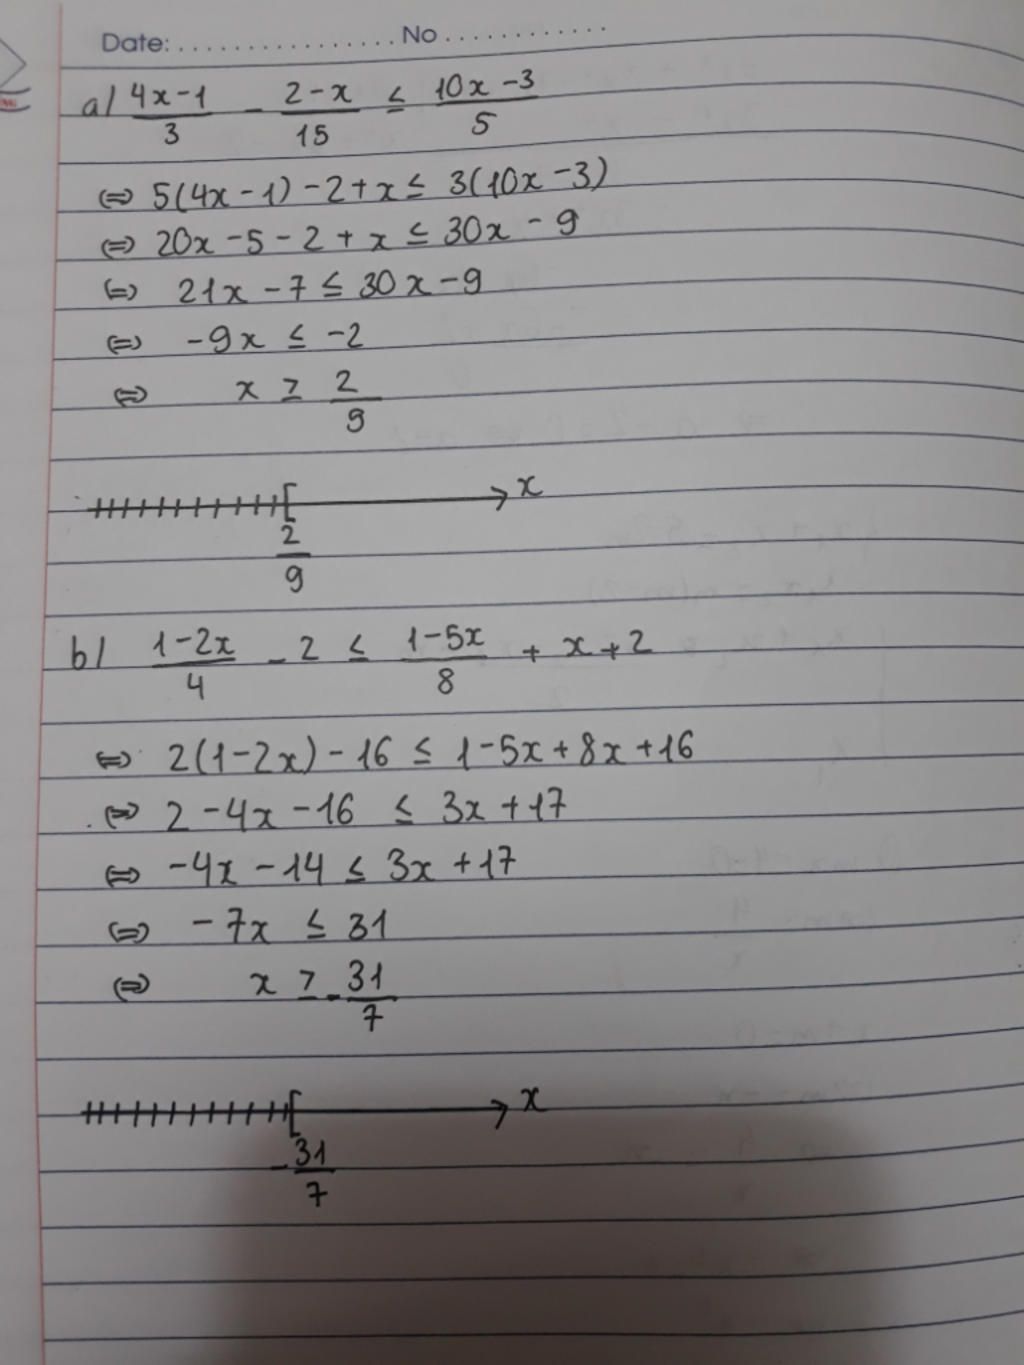 Date: ................. No ............
a/ \frac{4x-1}{3} - \frac{2-x}{15} ≤ \frac{10x-3}{5}
⇔ 5(4x-1)-2+x ≤ 3(10x-3)
⇔ 20x-5-2+x ≤ 30x-9
⇔ 21x-7 ≤ 30x-9
⇔ -9x ≤ -2
⇔ x ≥ \frac{2}{9}
[ x
\frac{2}{9}
b/ \frac{1-2x}{4} - 2 ≤ \frac{1-5x}{8} + x + 2
⇔ 2(1-2x)-16 ≤ 1-5x+8x+16
⇔ 2-4x-16 ≤ 3x+17
⇔ -4x-14 ≤ 3x+17
⇔ -7x ≤ 31
⇔ x ≥ -\frac{31}{7}
[ x
-\frac{31}{7}